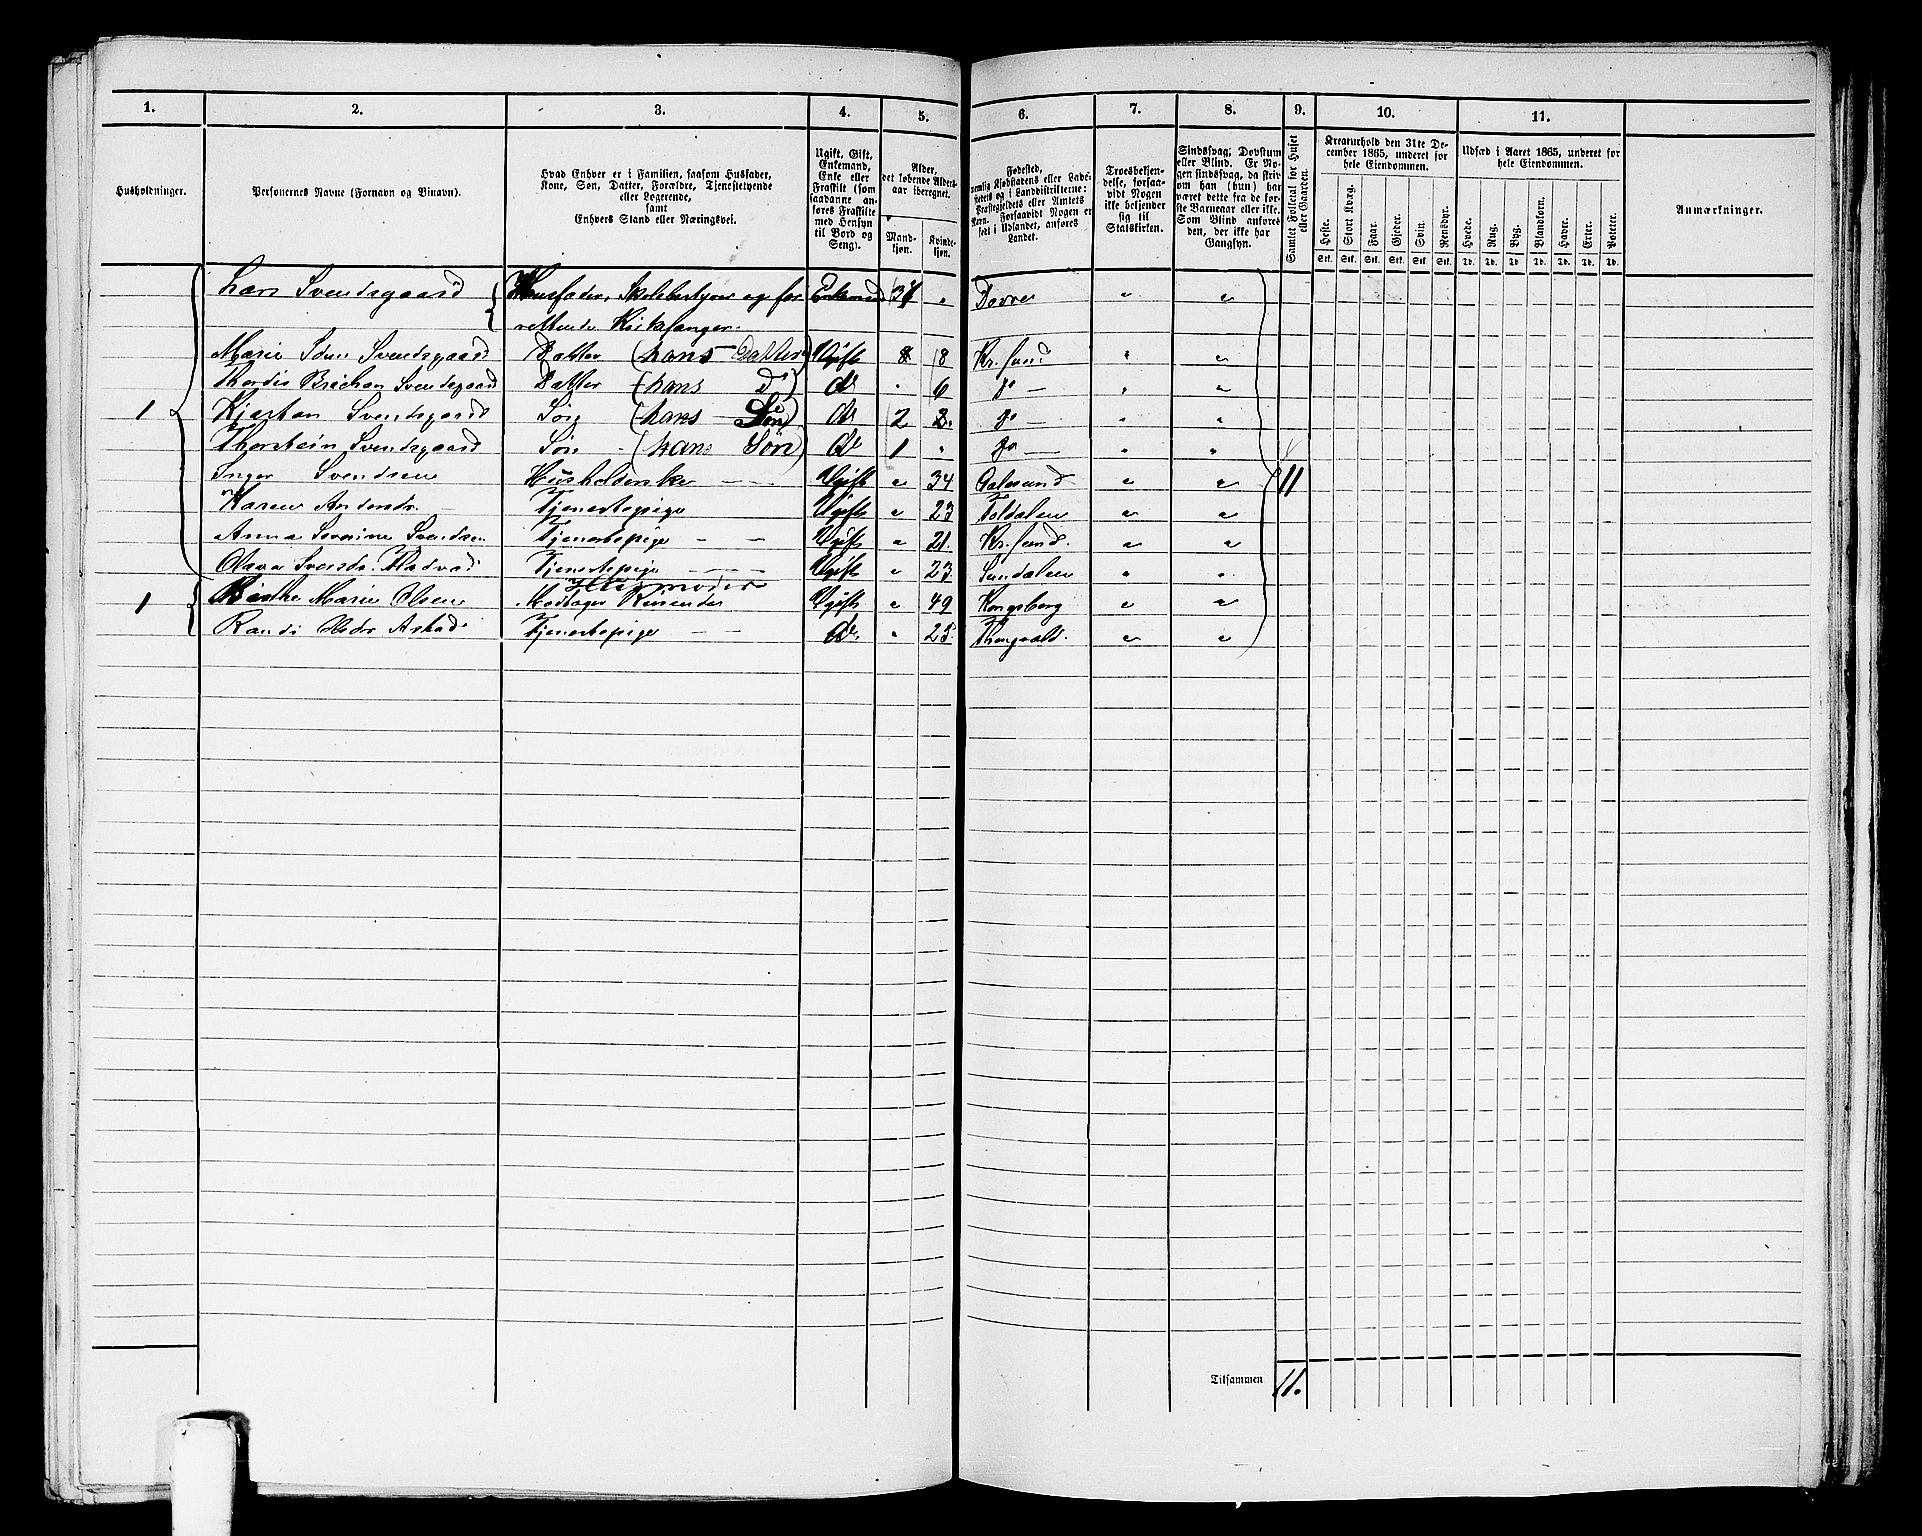 1. 2. 3. 4. 5. 6. 7. 8. 9. 10. 11.
Husholdninger.
Personernes Navne (Fornavn og Binavn).
Hvad Enhver er i Familien, saasom Husfader,
Kone, Søn, Datter, Forældre, Tjenestetyende
eller Logerende,
samt
Enhvers Stand eller Næringsvei.
Ugift, Gift,
Enkemand,
Enke eller
Fraskilt (som
saadanne an-
føres Fraskilte
med Hensyn
til Bord og
Seng).
Alder,
det løbende Alders-
aar iberegnet.
Mand-
kjøn.
Kvinde-
kjøn.
Fødested,
nemlig Kjøbstadens eller Lade-
stedets og i Landdistrikterne:
Præstegjeldets eller Amtets
Navn. Forsaavidt Nogen er
født i Udlandet, anføres
Landet.
Troesbekjen-
delse, forsaa-
vidt Nogen
ikke bekjender
sig til
Statskirken.
Sindssvag; Døvstum
eller Blind. Er No-
gen sindssvag, da skriv
om han (hun) har
været dette fra de før-
ste Barneaar eller ikke.
Som Blind anføres
den, der ikke har
Gangsyn.
Samlet Folketal for Huset
eller Gaarden.
Kreaturhold den 31te De-
cember 1865, underet for
hele Eiendommen.
Heste. Stort Kvæg. Faar. Gjeder. Svin. Rensdyr.
Stk. Stk. Stk. Stk. Stk. Stk.
Udsæd i Aaret 1865, underet for
hele Eiendommen.
Hvede. Rug. Byg. Blandkorn. Havre. Erter. Poteter.
Td. Td. Td. Td. Td. Td. Td.
Anmærkninger.
Lars Svendsgaard Huusfader, Skolebestyrer og for Enkemand 37 " Dovre " "
rettende Kirkesanger.
Marie Svendsgaard Datter (hans Datter) Ugift 8 8 Kr. sund " "
Thordis Svendsgaard Datter (hans D) do " 6 do — " "
1 Kjartan Svendsgaard Søn (hans Søn) do 2 do — " "
Thorstein Svendsgaard Søn (hans Søn) do 1 " do — " "
Inger Svendsen Husholderske — Ugift " 34 Aalesund " " 11
Karen Andersdr. Tjenestepige Ugift " 23 Foldalen " "
Anna Severine Svendsen Tjenestepige — — Ugift " 21. Kr. sund. " "
Svensdr. Tjenestepige — Ugift " 23 Sundalen " "
Huusmoder
1 Marie Olsen Ugift " 49 Kongsberg " "
Randi Tjenestepige — — do. " 25. Thingvold. " "
Tilsammen 11.